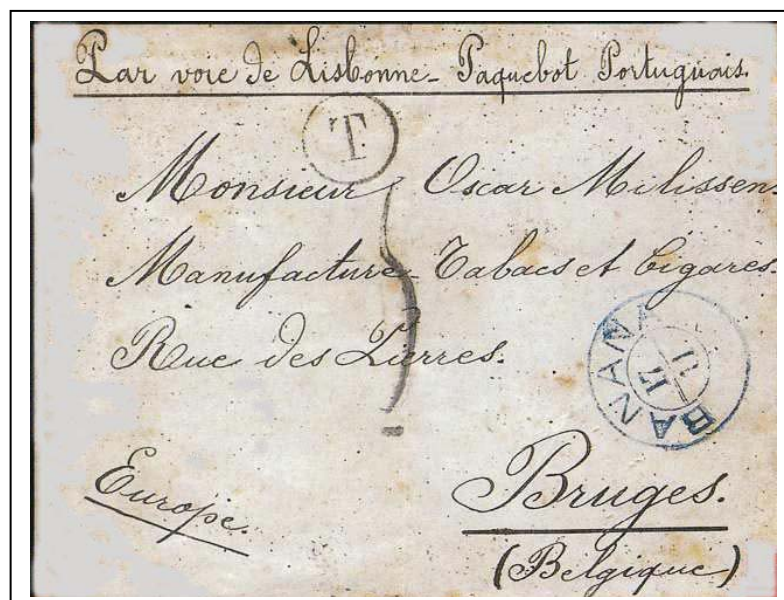 Par voie de Lisbonne - Paquebot Portugais.
T
Monsieur Oscar Milissen.
Manufacture Tabacs et Cigares.
Rue des Pierres.
BANANA
17
11
Europe.
Bruges.
(Belgique)